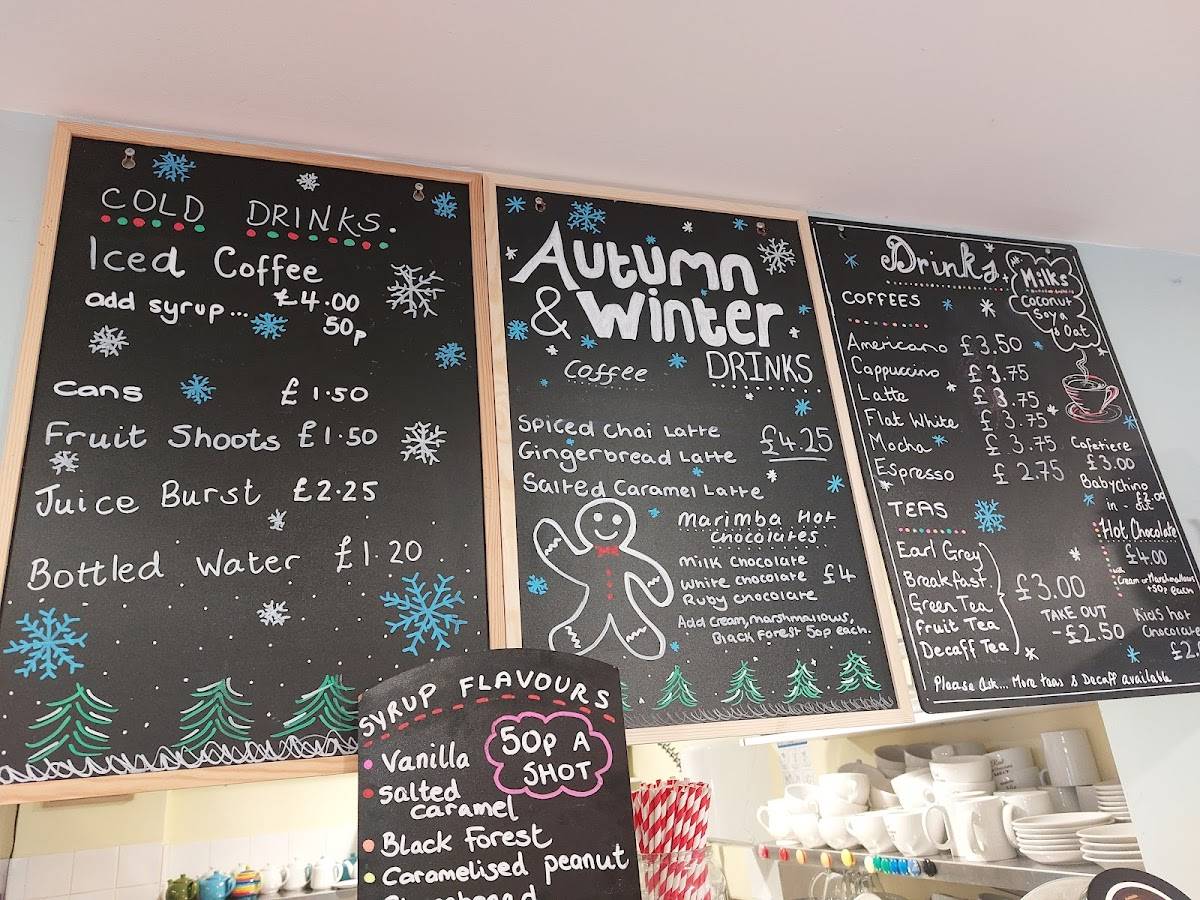 COLD DRINKS.
Iced Coffee
£4.00
add syrup... 50p
Cans £1.50
Fruit Shoots £1.50
Juice Burst £2.25
Bottled Water £1.20
Autumn
& Winter
DRINKS
Coffee
Spiced Chai Latte
Gingerbread Latte £4.25
Salted Caramel Latte
Marimba Hot
Chocolates
Milk Chocolate
White Chocolate £4
Ruby Chocolate
Add Cream, marshmallows,
Black Forest 50p each.
Drinks
Milks
Coconut
Soya
& Oat
COFFEES
Americano £3.50
Cappuccino £3.75
Latte £3.75
Flat White £3.75
Mocha £3.75
Espresso £2.75
Cafetiere
£3.00
Babychino
£2.00
in - out
TEAS
Earl Grey
Breakfast
Green Tea
Fruit Tea
Decaff Tea
£3.00
TAKE OUT
-£2.50
Hot Chocolate
£4.00
Cream or Marshmallows
+50p each
Kid's hot
Chocolate
Please Ask... More teas & Decaff available
SYRUP FLAVOURS
50p A
SHOT
Vanilla
Salted
Caramel
Black Forest
Caramelised peanut